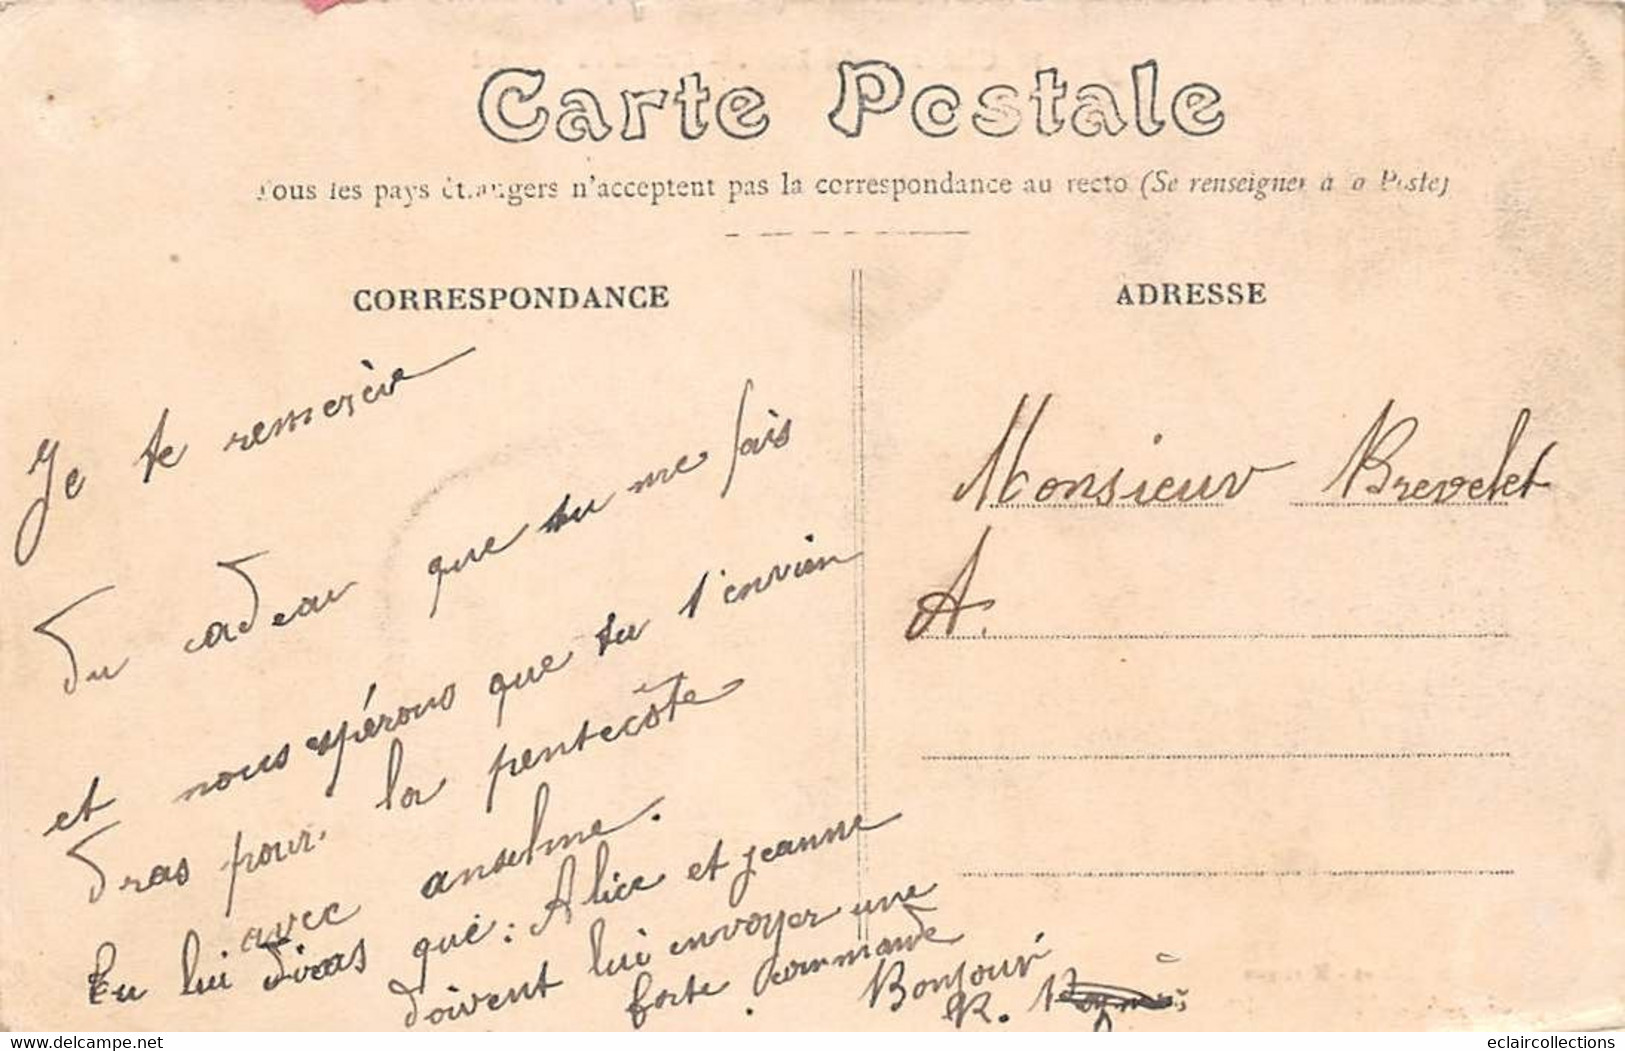 Carte Postale
Tous les pays étrangers n'acceptent pas la correspondance au recto (Se renseigner à la Poste)
CORRESPONDANCE
Je te remercie
du cadeau que tu me fais
et nous espérons que tu t'envien
dras pour la pentecôte
avec anselme.
tu lui diras que : Alice et jeanne
doivent lui envoyer une
forte commande.
Bonjour
R.
ADRESSE
Monsieur Brevelet
A.
eclaircollections